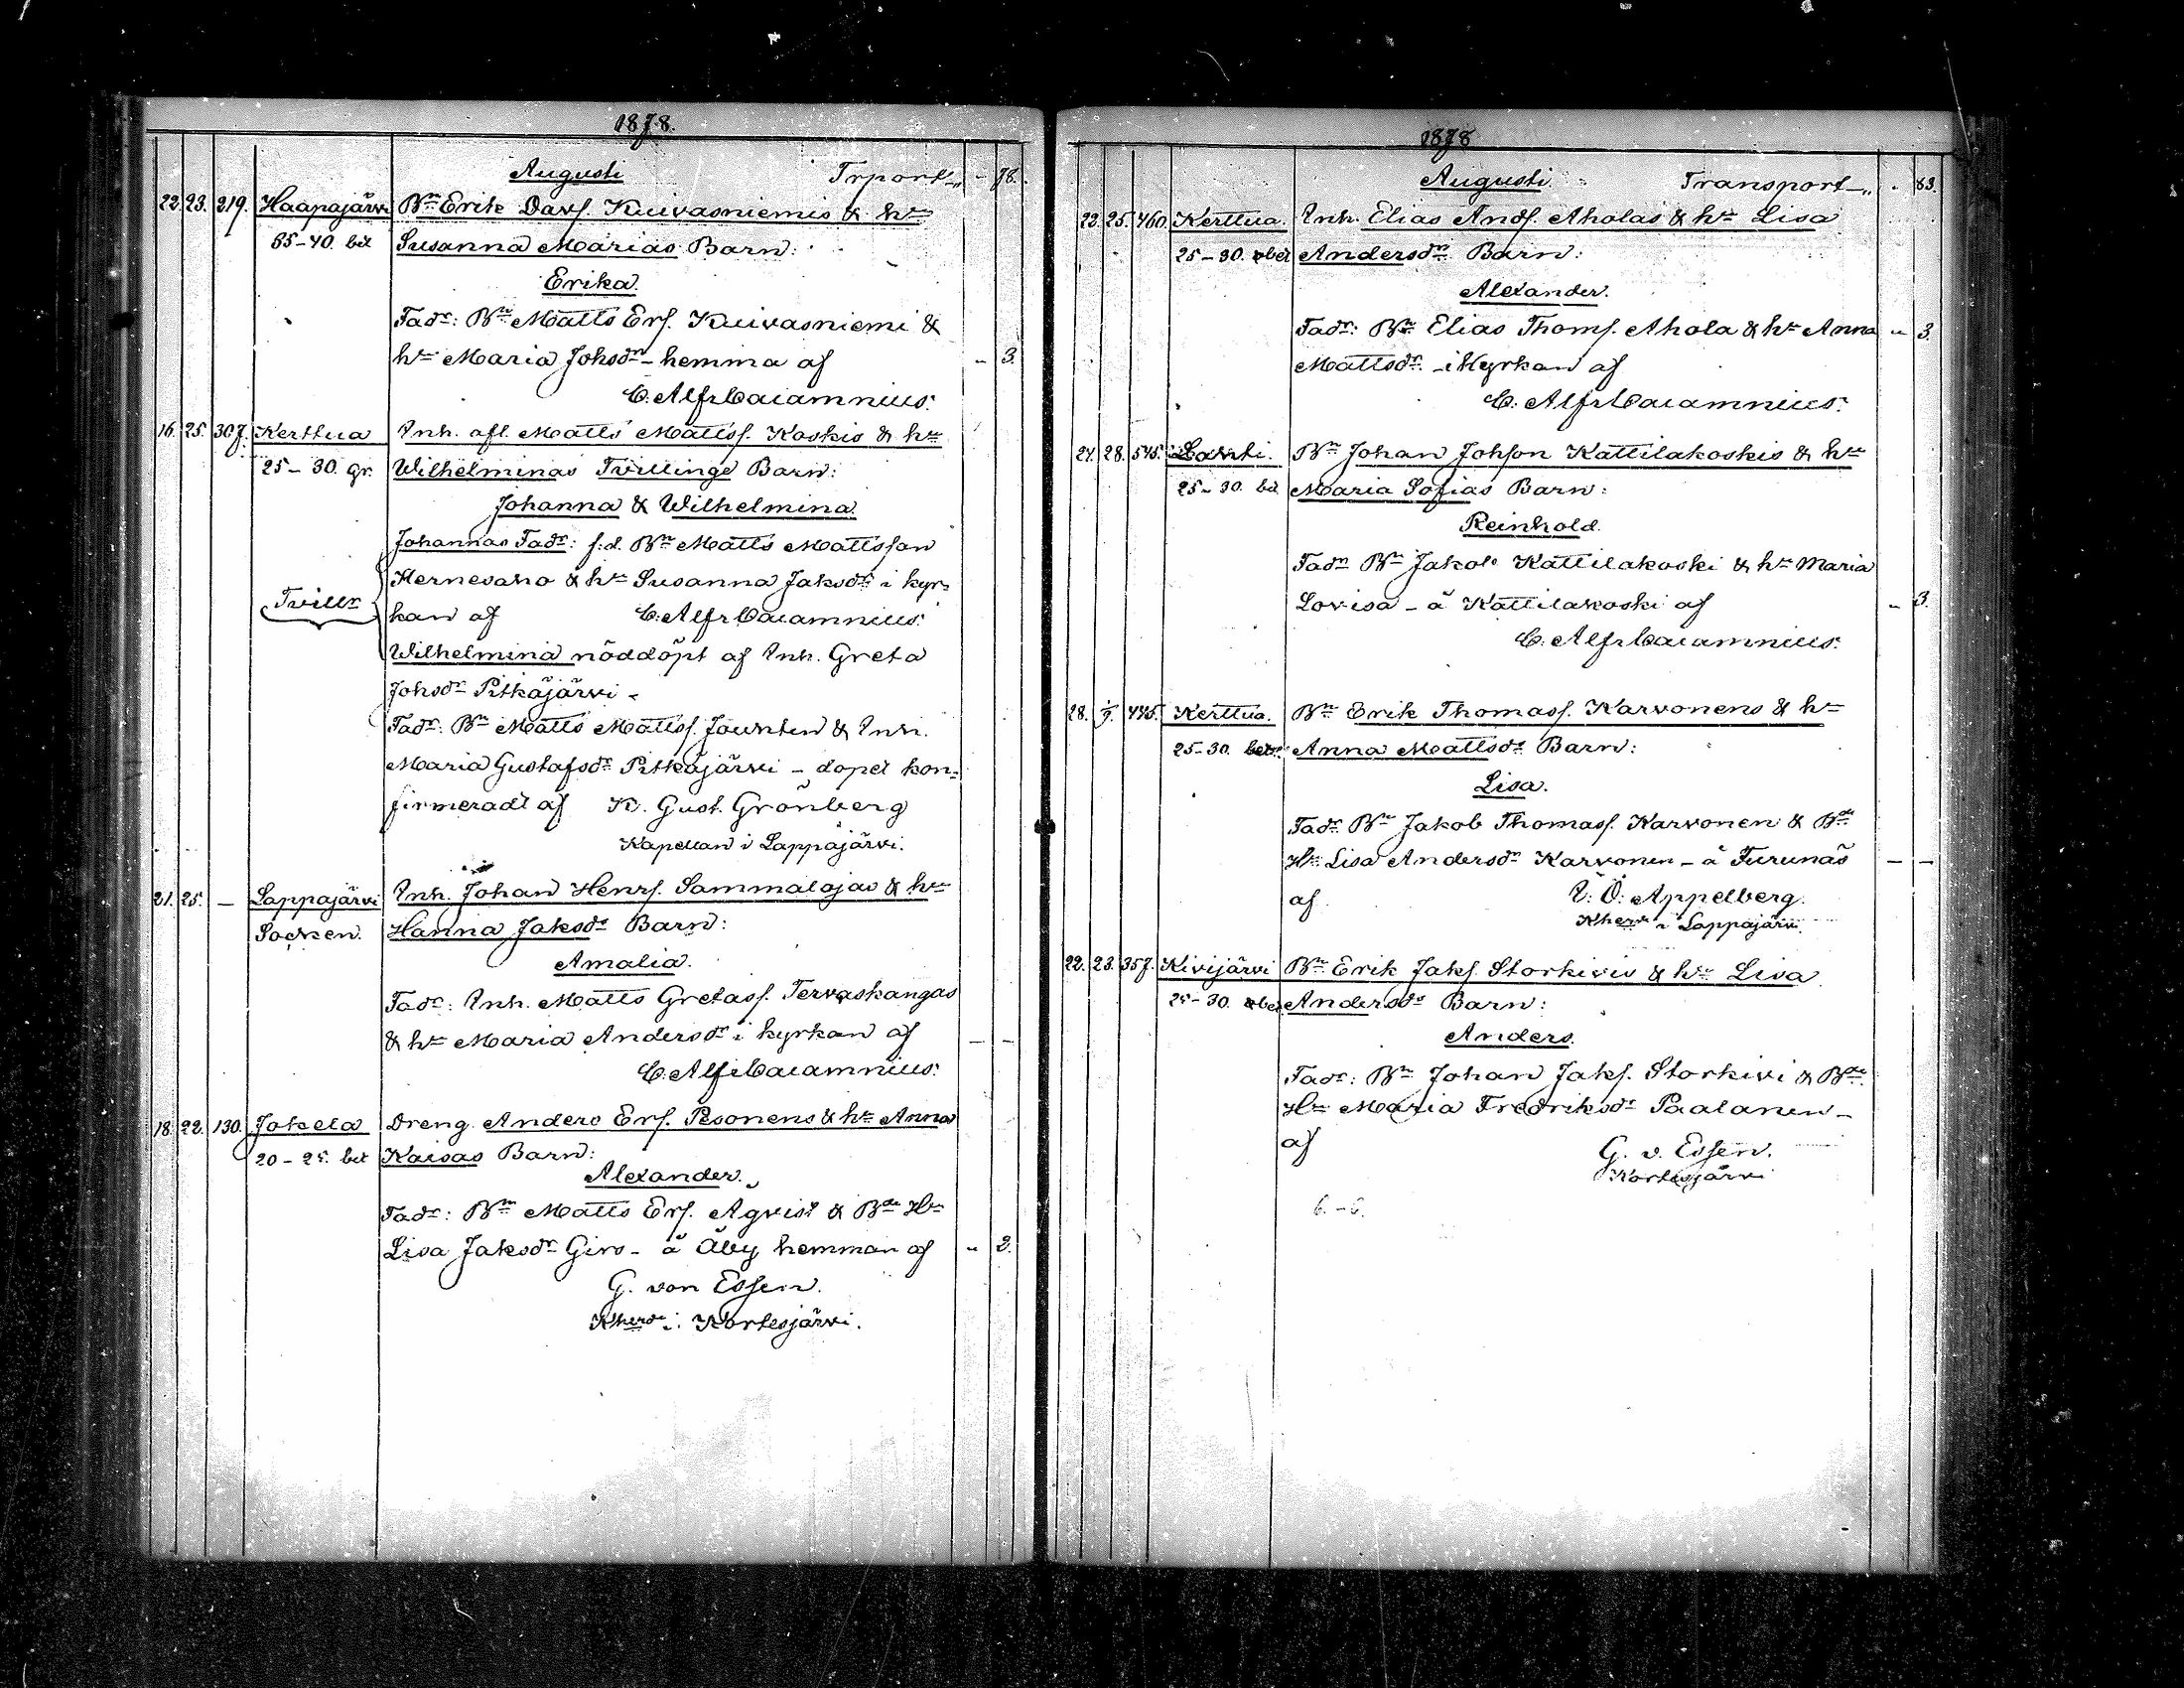 1878.
Augusti Trport " - 78.
22. 23. 219. Haapajärvi Bn Erik Davs. Kuivasniemis & hu
35-40. bet Susanna Marias Barn:
Erika.
Fadr: Bn Matts Ers. Kuivasniemi &
hu Maria Johsdr - hemma af - 3.
C. Alfr Caiamnius.
16. 25. 307. Kerttua Inh. afl. Matts Mattss. Koskis & hu
25-30. gr. Wilhelminas Tvillinge Barn:
Johanna & Wilhelmina
Johannas Fadr: f.d. Bn Matts Mattsson
Hernesaho & hu Susanna Jaksdr i kyr-
Tvillr kan af C. Alfr Caiamnius.
Wilhelmina nöddöpt af Inh. Greta
Johsdr Pitkäjärvi -
Fadr: Bn Matts Mattss. Jounten & Inh.
Maria Gustafsdr Pitkäjärvi - dopet kon-
firmeradt af K. Gust. Grönberg
Kapellan i Lappajärvi.
21. 25. - Lappajärvi Inh. Johan Henrs. Sammalojas & hu
Socken. Hanna Jaksdr Barn:
Amalia.
Fadr: Inh. Matts Gretass. Tervaskangas
& hu Maria Andersdr i kyrkan af - -
C. Alfr Caiamnius.
18. 22. 130. Jokela Dreng Anders Ers. Pesonens & hu Anna
20-25. bet Kaisas Barn:
Alexander.
Fadr: Bn Matts Ers. Aqvist & Bde Hu
Lisa Jaksdr Girs - å Åby hemman af " 2.
G. von Essen.
Kherde i Kortesjärvi.
1878
Augusti. Transport " . 83.
23. 25. 460. Kerttua. Inh. Elias Ands. Aholas & hu Lisa
25-30. bet Andersdr Barn:
Alexander.
Fadr: Bn Elias Thoms. Ahola & hu Anna " 3.
Mattsdr - i Kyrkan af
C. Alfr Caiamnius.
24. 28. 545. Lahti. Bn Johan Johsson Kattilakoskis & hu
25-30. bet Maria Sofias Barn:
Reinhold.
Fadr Bn Jakob Kattilakoski & hu Maria
Lovisa - å Kattilakoski af " 3.
C. Alfr Caiamnius.
28. 1/9. 445. Kerttua. Bn Erik Thomass. Karvonens & hu
25-30. bet. Anna Mattsdr Barn:
Lisa.
Fadr Bn Jakob Thomass. Karvonen & Bde
Hu Lisa Andersdr Karvonen - å Furunäs - -
af I. Ö. Appelberg.
Kherde i Lappajärvi.
22. 23. 357. Kivijärvi Bn Erik Jaks. Storkivis & hu Lisa
25-30. bet Andersdr Barn:
Anders.
Fadr: Bn Johan Jaks. Storkivi & Bde
Hu Maria Fredriksdr Paalanen -
af G. v. Essen.
Kortesjärvi
6. - 6.